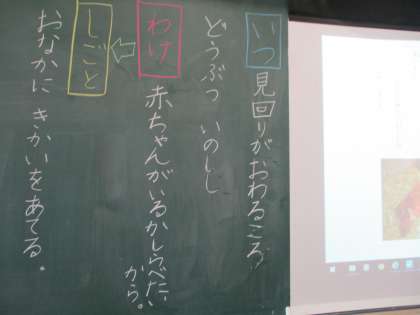 いつ 見回りがおわるころ
どうぶつ いのしし
わけ 赤ちゃんがいるかしらべたい
から。
しごと
おなかに きかいをあてる。